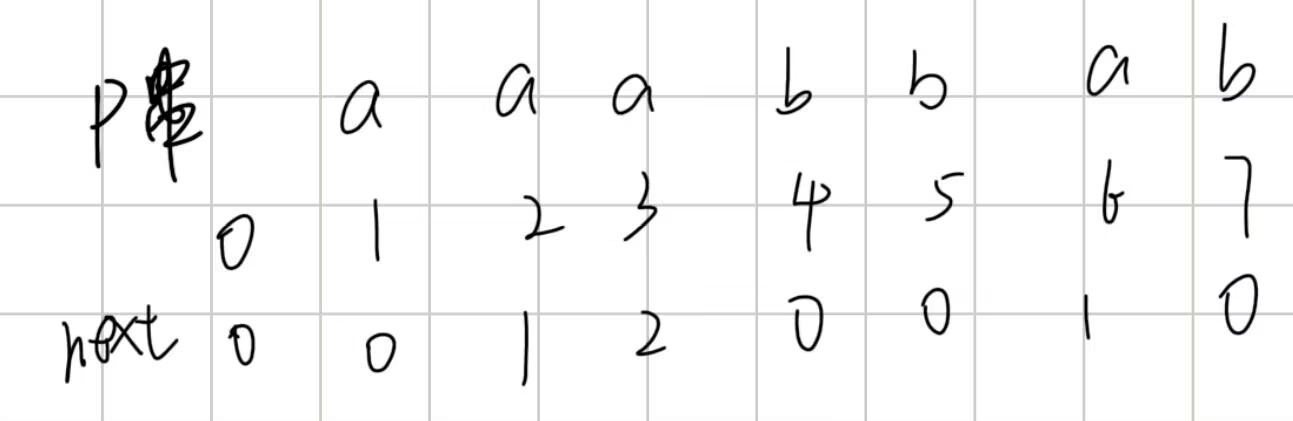 P串 a a a b b a b
0 1 2 3 4 5 6 7
next 0 0 1 2 0 0 1 0